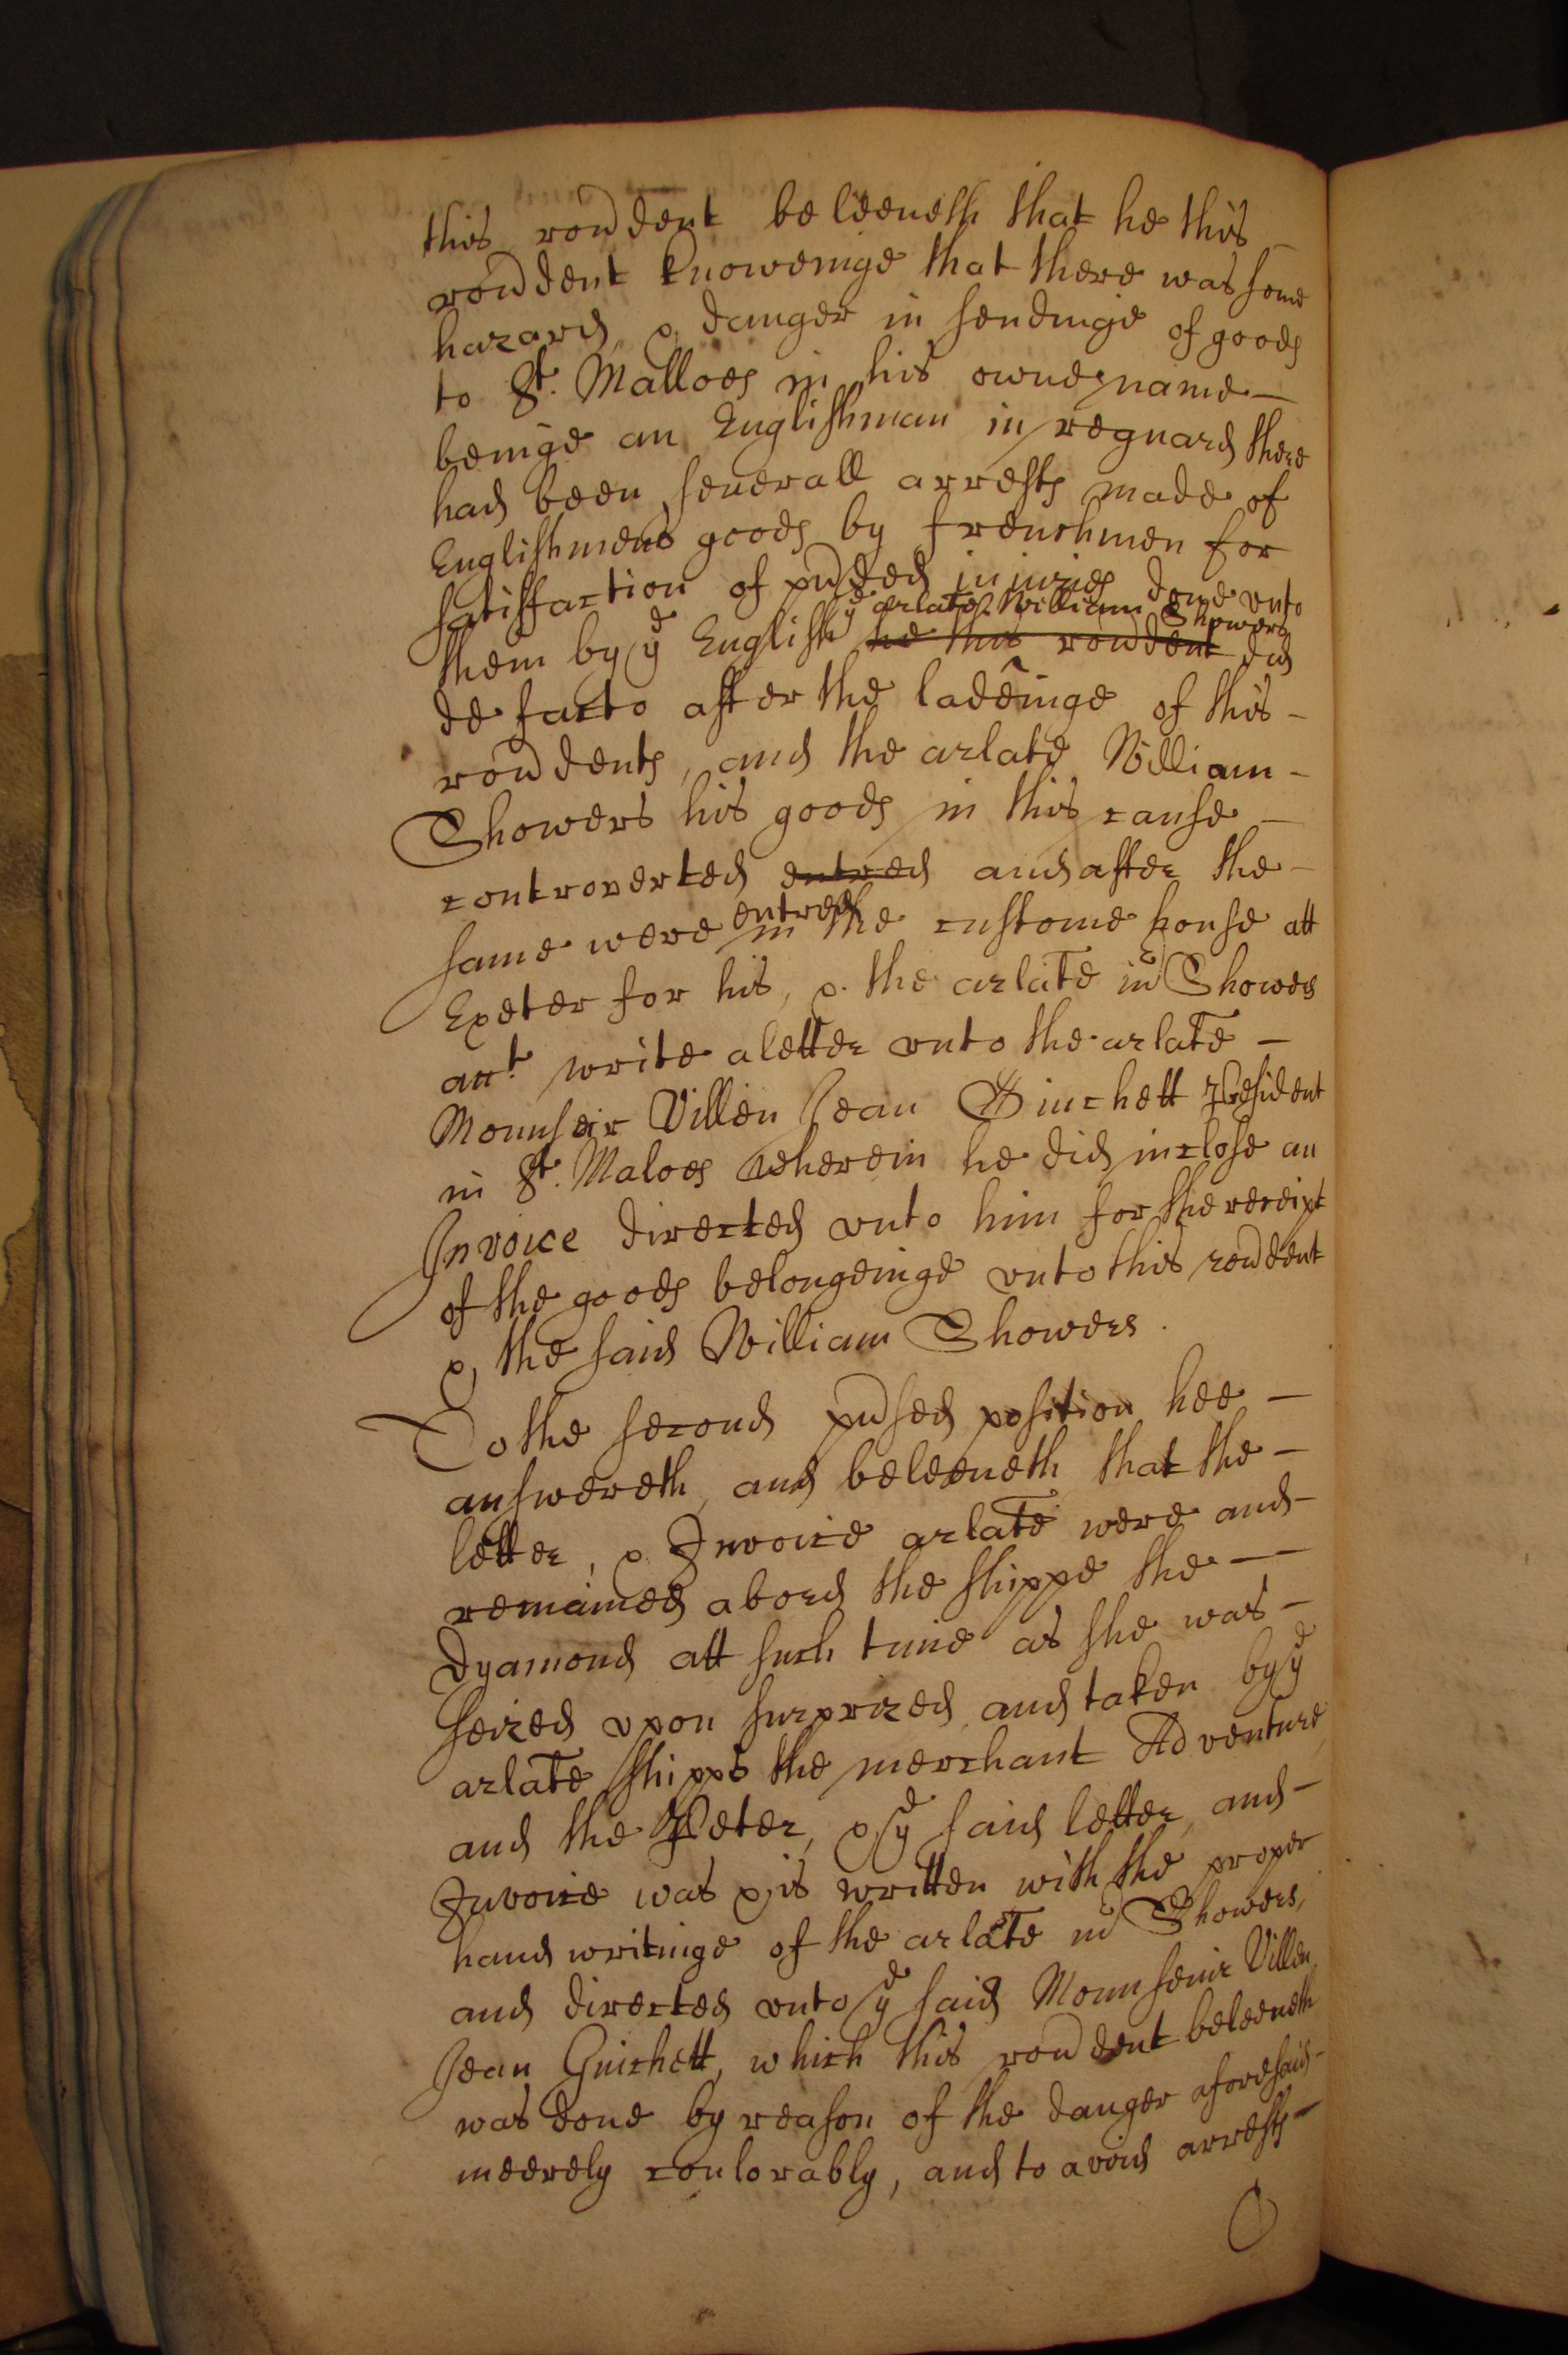 this rondent beleeueth that he this
rondent knoweinge that there was some
hazard, & danger in sendinge of goods
to St. Malloes in his owne name
beinge an Englishman in reguard there
had been seuerall arrests made of
Englishmens goods by frenchmen for
satisfaction of pnded iniuries done vnto
ye arlate William Showers
them by ye English he this rondent did
de facto after the ladeinge of this
rondents, and the arlate William
Showers his goods in this cause
controverted entred and after the
same were entred in the custome house att
Exeter for his, & the arlate Showers
write a letter vnto the arlate
Mounseir Villen Jean Guichett Resident
in St. Maloes wherein he did inclose an
Invoice directed vnto him for the receipt
of the goods belongeinge vnto this rondent
& the said William Showers.
To the second position hee
answereth, and beleeueth that the
letter, & Invoice arlate were and
remained abord the shippe the
Dyamond att such time as she was
seized vpon surprized and taken by ye
arlate shipps the merchant Adventure,
and the Peter, & ye said letter, and
Invoice was & is written with the proper
hand writinge of the arlate Showers,
and directed vnto ye said Mounseuir Villen
Jean Guichett, which this rondent beleeueth
was done by reason of the danger aforesaid
meerely coulorably, and to avoid arrests